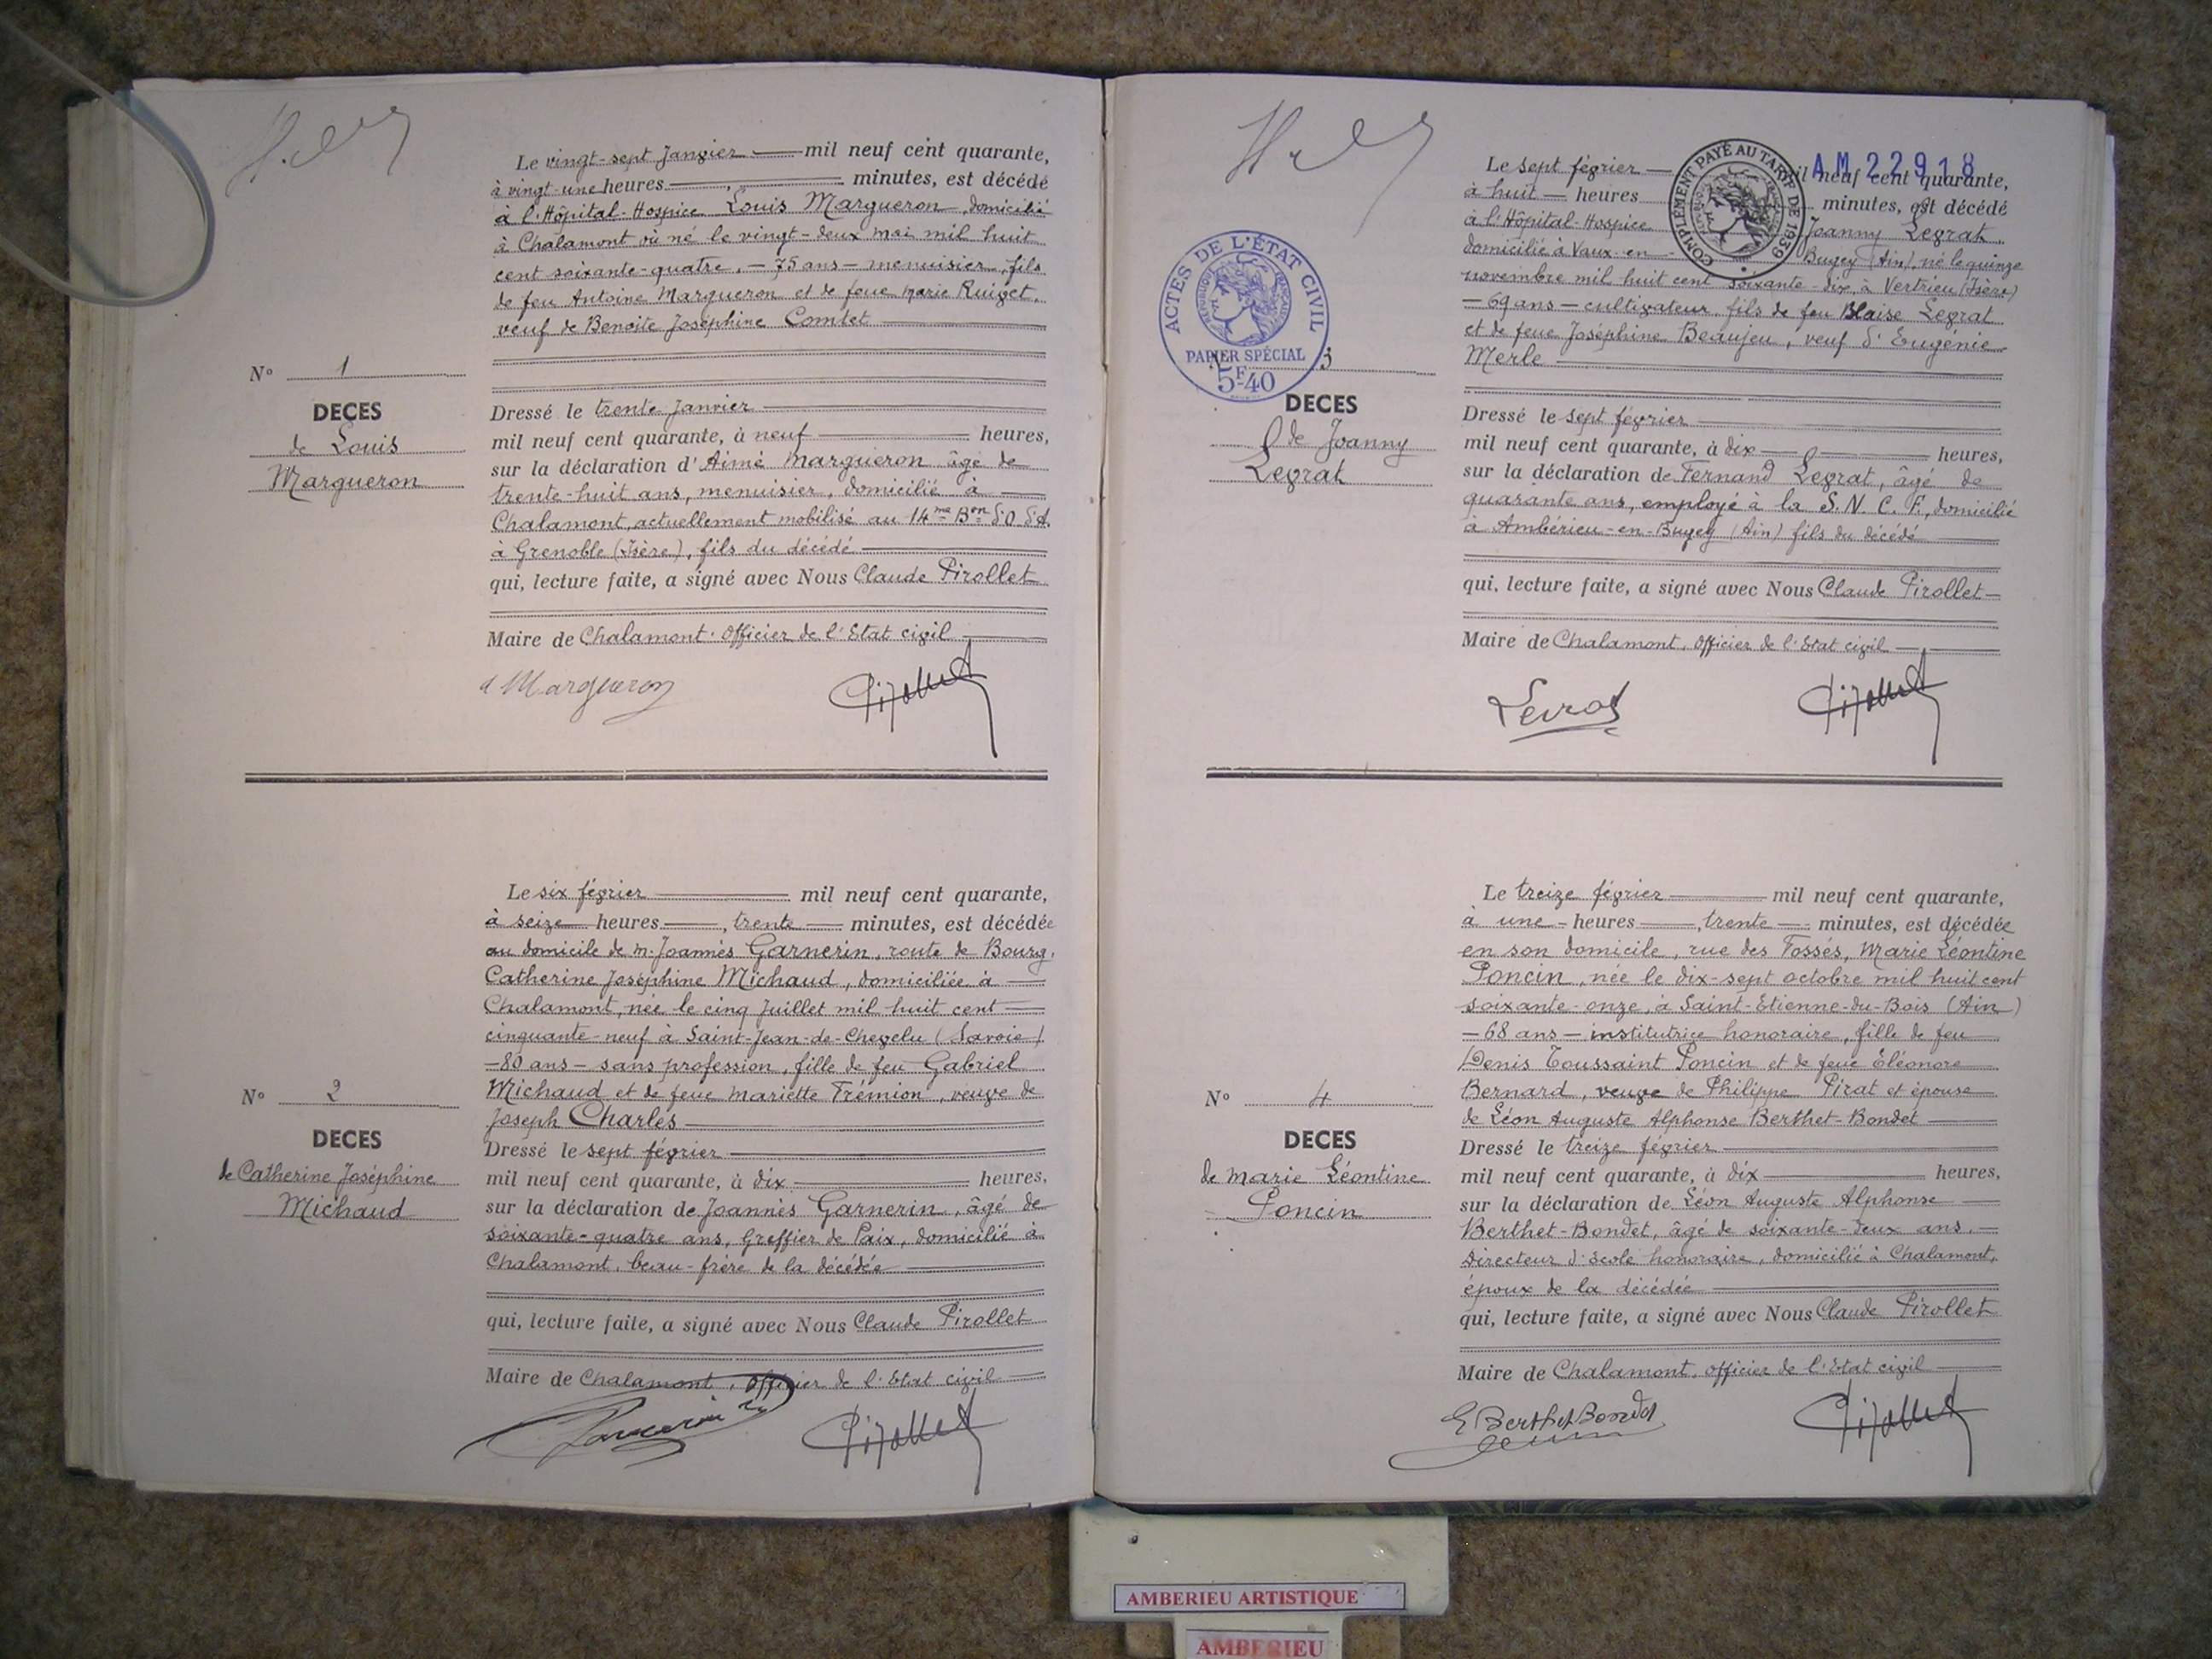 Le vingt-sept Janvier mil neuf cent quarante,
à vingt-une heures , minutes, est décédé
à l'Hôpital-Hospice Louis Margueron, domicilié
à Chalamont où né le vingt-deux mai mil huit
cent soixante-quatre, - 75 ans - menuisier, fils
de feu Antoine Margueron et de feue Marie Ruivet,
veuf de Benoite Joséphine Comtet
N° 1
DECES
de Louis
Margueron
Dressé le trente Janvier
mil neuf cent quarante, à neuf heures,
sur la déclaration d'Aimé Margueron âgé de
trente-huit ans, menuisier, domicilié à
Chalamont, actuellement mobilisé au 14me Bon d'O.d'A.
à Grenoble (Isère), fils du décédé
qui, lecture faite, a signé avec Nous Claude Pirollet
Maire de Chalamont. Officier de l'Etat civil
a Margueron Pirollet
Le six février mil neuf cent quarante,
à seize heures , trente minutes, est décédée
au domicile de M. Joannès Garnerin, route de Bourg,
Catherine Joséphine Michaud, domiciliée à
Chalamont, née le cinq Juillet mil huit cent
cinquante-neuf à Saint-Jean-de-Chevelu (Savoie)
-80 ans - sans profession, fille de feu Gabriel
Michaud et de feue Mariette Frémion, veuve de
Joseph Charles
N° 2
DECES
de Catherine Joséphine
Michaud
Dressé le sept février
mil neuf cent quarante, à dix heures,
sur la déclaration de Joannès Garnerin, âgé de
soixante-quatre ans, Greffier de Paix, domicilié à
Chalamont, beau-frère de la décédée
qui, lecture faite, a signé avec Nous Claude Pirollet
Maire de Chalamont, Officier de l'Etat civil
Garnerin Pirollet
AM 22918
COMPLÉMENT PAYÉ AU TARIF DE 1939
Le sept février mil neuf cent quarante,
à huit heures minutes, est décédé
à l'Hôpital-Hospice Joanny Levrat
domicilié à Vaux-en- Bugey (Ain), né le quinze
novembre mil huit cent soixante-dix, à Vertrieu (Isère)
- 69 ans - cultivateur, fils de feu Blaise Levrat
et de feue Joséphine Beaujeu, veuf d'Eugénie
Merle
ACTES DE L'ÉTAT CIVIL
PAPIER SPÉCIAL
5F40
3
DECES
de Joanny
Levrat
Dressé le sept février
mil neuf cent quarante, à dix heures,
sur la déclaration de Fernand Levrat, âgé de
quarante ans, employé à la S.N.C.F., domicilié
à Ambérieu-en-Bugey (Ain) fils du décédé
qui, lecture faite, a signé avec Nous Claude Pirollet
Maire de Chalamont, Officier de l'Etat civil
Levrat Pirollet
Le treize février mil neuf cent quarante,
à une heures , trente minutes, est décédée
en son domicile, rue des Fossés, Marie Léontine
Poncin, née le dix-sept octobre mil huit cent
soixante-onze, à Saint-Etienne-du-Bois (Ain)
- 68 ans - institutrice honoraire, fille de feu
Denis Toussaint Poncin et de feue Eléonore
Bernard, veuve de Philippe Pirat et épouse
de Léon Auguste Alphonse Berthet-Bondet
N° 4
DECES
de Marie Léontine
Poncin
Dressé le treize février
mil neuf cent quarante, à dix heures,
sur la déclaration de Léon Auguste Alphonse
Berthet-Bondet, âgé de soixante-deux ans,
Directeur d'école honoraire, domicilié à Chalamont,
époux de la décédée
qui, lecture faite, a signé avec Nous Claude Pirollet
Maire de Chalamont, Officier de l'Etat civil
Berthet Bondet Pirollet
AMBERIEU ARTISTIQUE
AMBERIEU